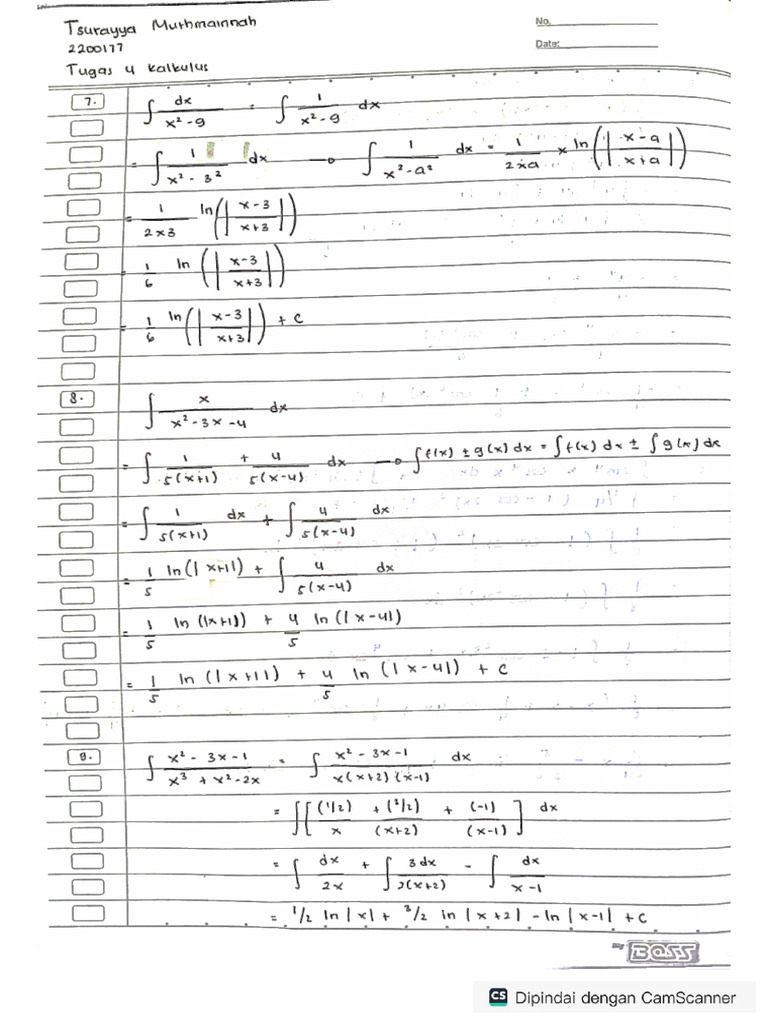 Tsurayya Muthmainnah
No.
2200177
Date:
Tugas 4 kalkulus
7. ∫ dx / x² - 9 = ∫ 1 / x² - 9 dx
= ∫ 1 / x² - 3² dx → ∫ 1 / x² - a² dx = 1 / 2×a × ln(| x - a / x + a |)
= 1 / 2×3 ln(| x - 3 / x + 3 |)
= 1/6 ln (| x - 3 / x + 3 |)
= 1/6 ln (| x - 3 / x + 3 |) + c
8. ∫ x / x² - 3x - 4 dx
= ∫ 1 / 5(x+1) + 4 / 5(x-4) dx → ∫ f(x) ± g(x) dx = ∫ f(x) dx ± ∫ g(x) dx
= ∫ 1 / 5(x+1) dx + ∫ 4 / 5(x-4) dx
= 1/5 ln (|x+1|) + ∫ 4 / 5(x-4) dx
= 1/5 ln (|x+1|) + 4/5 ln (|x-4|)
= 1/5 ln (|x+1|) + 4/5 ln (|x-4|) + c
9. ∫ x² - 3x - 1 / x³ + x² - 2x = ∫ x² - 3x - 1 / x(x+2)(x-1) dx
= ∫ [ (1/2) / x + (3/2) / (x+2) + (-1) / (x-1) ] dx
= ∫ dx / 2x + ∫ 3 dx / 2(x+2) - ∫ dx / x-1
= 1/2 ln |x| + 3/2 ln |x+2| - ln |x-1| + c
my BOSS
CS Dipindai dengan CamScanner